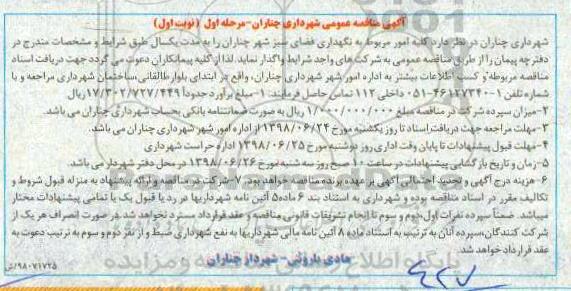 آگهی مناقصه عمومی شهرداری چناران-مرحله اول (نوبت اول)
شهرداری چناران در نظر دارد کلیه امور مربوط به نگهداری فضای سبز شهر چناران را به مدت یکسال طبق شرایط و مشخصات مندرج در
دفترچه پیمان را از طریق مناقصه عمومی به شرکت های واجد شرایط واگذار نماید. لذا از کلیه پیمانکاران دعوت می گردد جهت دریافت اسناد
مناقصه مربوطه و کسب اطلاعات بیشتر به اداره امور شهر شهرداری چناران، واقع در ابتدای بلوار طالقانی،ساختمان شهرداری مراجعه و یا
شماره تلفن ۱-۴۶۱۲۷۳۴۰-۰۵۱ داخلی ۱۱۲ تماس حاصل فرمایند. ۱-مبلغ برآورد حدوداً ۱۷/۳۰۲/۷۲۷/۴۴۹ریال
۲-میزان سپرده شرکت در مناقصه مبلغ ۱/۰۰۰/۰۰۰/۰۰۰ ریال به صورت ضمانتنامه بانکی بحساب شهرداری چناران می باشد.
۳-مهلت مراجعه جهت دریافت اسناد تا روز یکشنبه مورخ ۱۳۹۸/۰۶/۲۴ از اداره امور شهر شهرداری چناران می باشد.
۴-مهلت قبول پیشنهادات تا پایان وقت اداری روز دوشنبه مورخ ۱۳۹۸/۰۶/۲۵ اداره حراست شهرداری
۵-زمان و تاریخ بازگشایی پیشنهادات در ساعت ۱۰ صبح روز سه شنبه مورخ ۱۳۹۸/۰۶/۲۶ در محل دفتر شهردار می باشد.
۶-هزینه درج آگهی و تجدید احتمالی آگهی بر عهده برنده مناقصه خواهد بود. ۷-شرکت در مناقصه و ارائه پیشنهاد به منزله قبول شروط و
تکالیف مقرر در اسناد مناقصه بوده و شهرداری به استناد بند ۶ ماده۵ آئین نامه شهرداریها در رد یا قبول یک یا تمامی پیشنهادات مختار
میباشد. ضمناً سپرده نفرات اول،دوم و سوم تا انجام تشریفات قانونی مناقصه و عقد قرارداد مسترد نخواهد شد. در صورت انصراف هر یک از
شرکت کنندگان،سپرده آنان به ترتیب به استناد ماده ۸ آئین نامه مالی شهرداریها به نفع شهرداری ضبط و از نفر دوم و سوم به ترتیب دعوت به
عقد قرارداد خواهد شد.
هادی باروتی- شهردار چناران
۹۸۰۷۱۷۲۵/ش